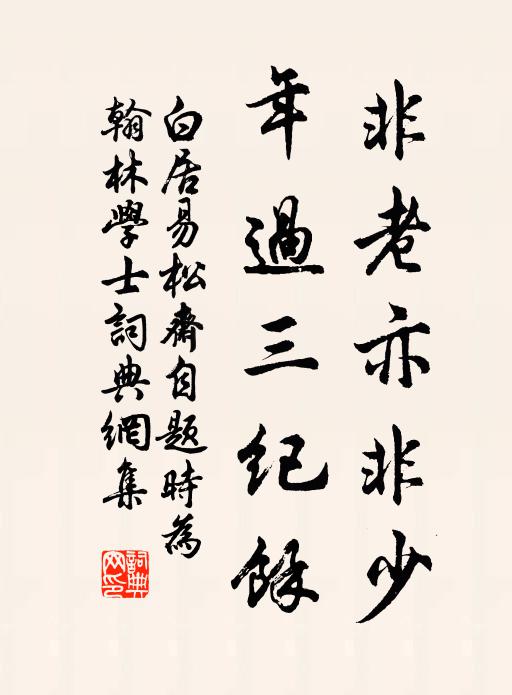 非老亦非少
年過三紀餘
白居易松齋自題時為
翰林學士詞典網集
詞典网印